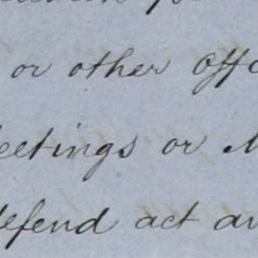 or other Offc
eetings or M
defend act an